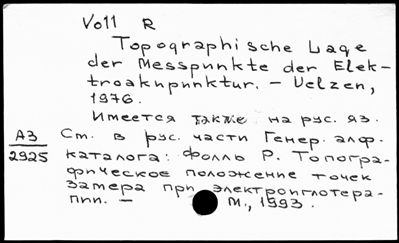 Voll R
Topographische Lage
der Messpunkte der Elek-
troakupunktur. – Uelzen,
1976.
Имеется также на рус. яз.
АЗ Ст. в рус. части Генер. алф.
2925 каталога: Фолль Р. Топогра-
фическое положение точек
замера при электроиглотера-
пии. – М., 1993.